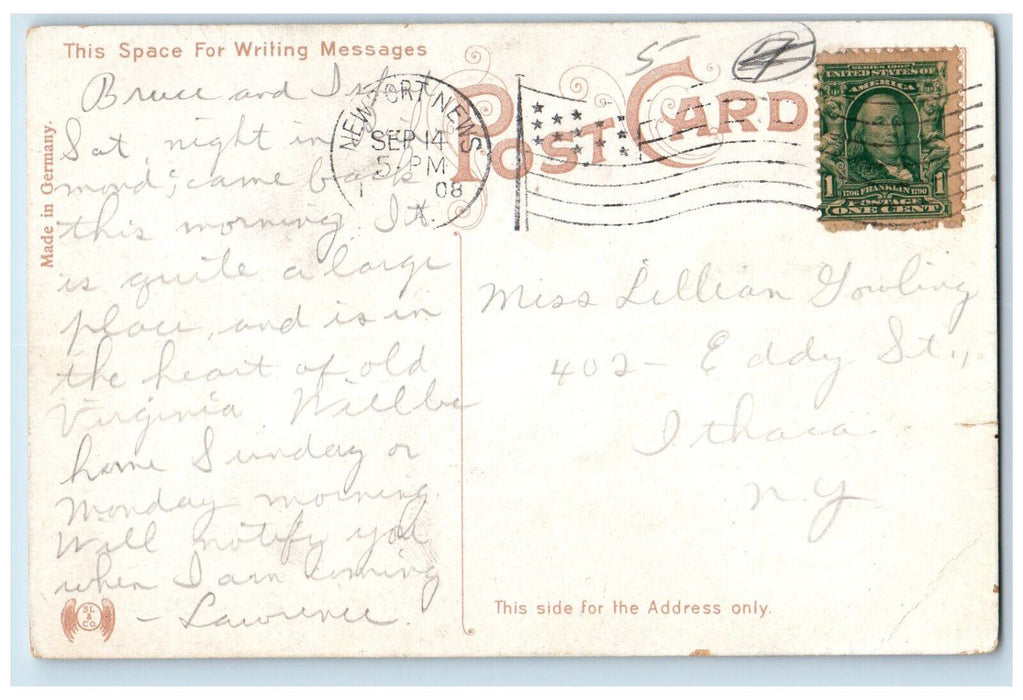 This Space For Writing Messages
POST CARD
5
7
Made in Germany.
NEWPORT NEWS
SEP 14
5 PM
08
SERIES 1902
UNITED STATES OF
AMERICA
1 1
1706 FRANKLIN 1790
POSTAGE
ONE CENT
Bruce and I
Sat. night in
mond; came back
this morning. It
is quite a large
place, and is in
the heart of old
Virginia Will be
home Sunday or
Monday morning.
Will notify you
when I am coming
- Lawrence.
SL
& CO
Miss Lillian Gowling
402 - Eddy St.,
Ithaca
N. Y
This side for the Address only.